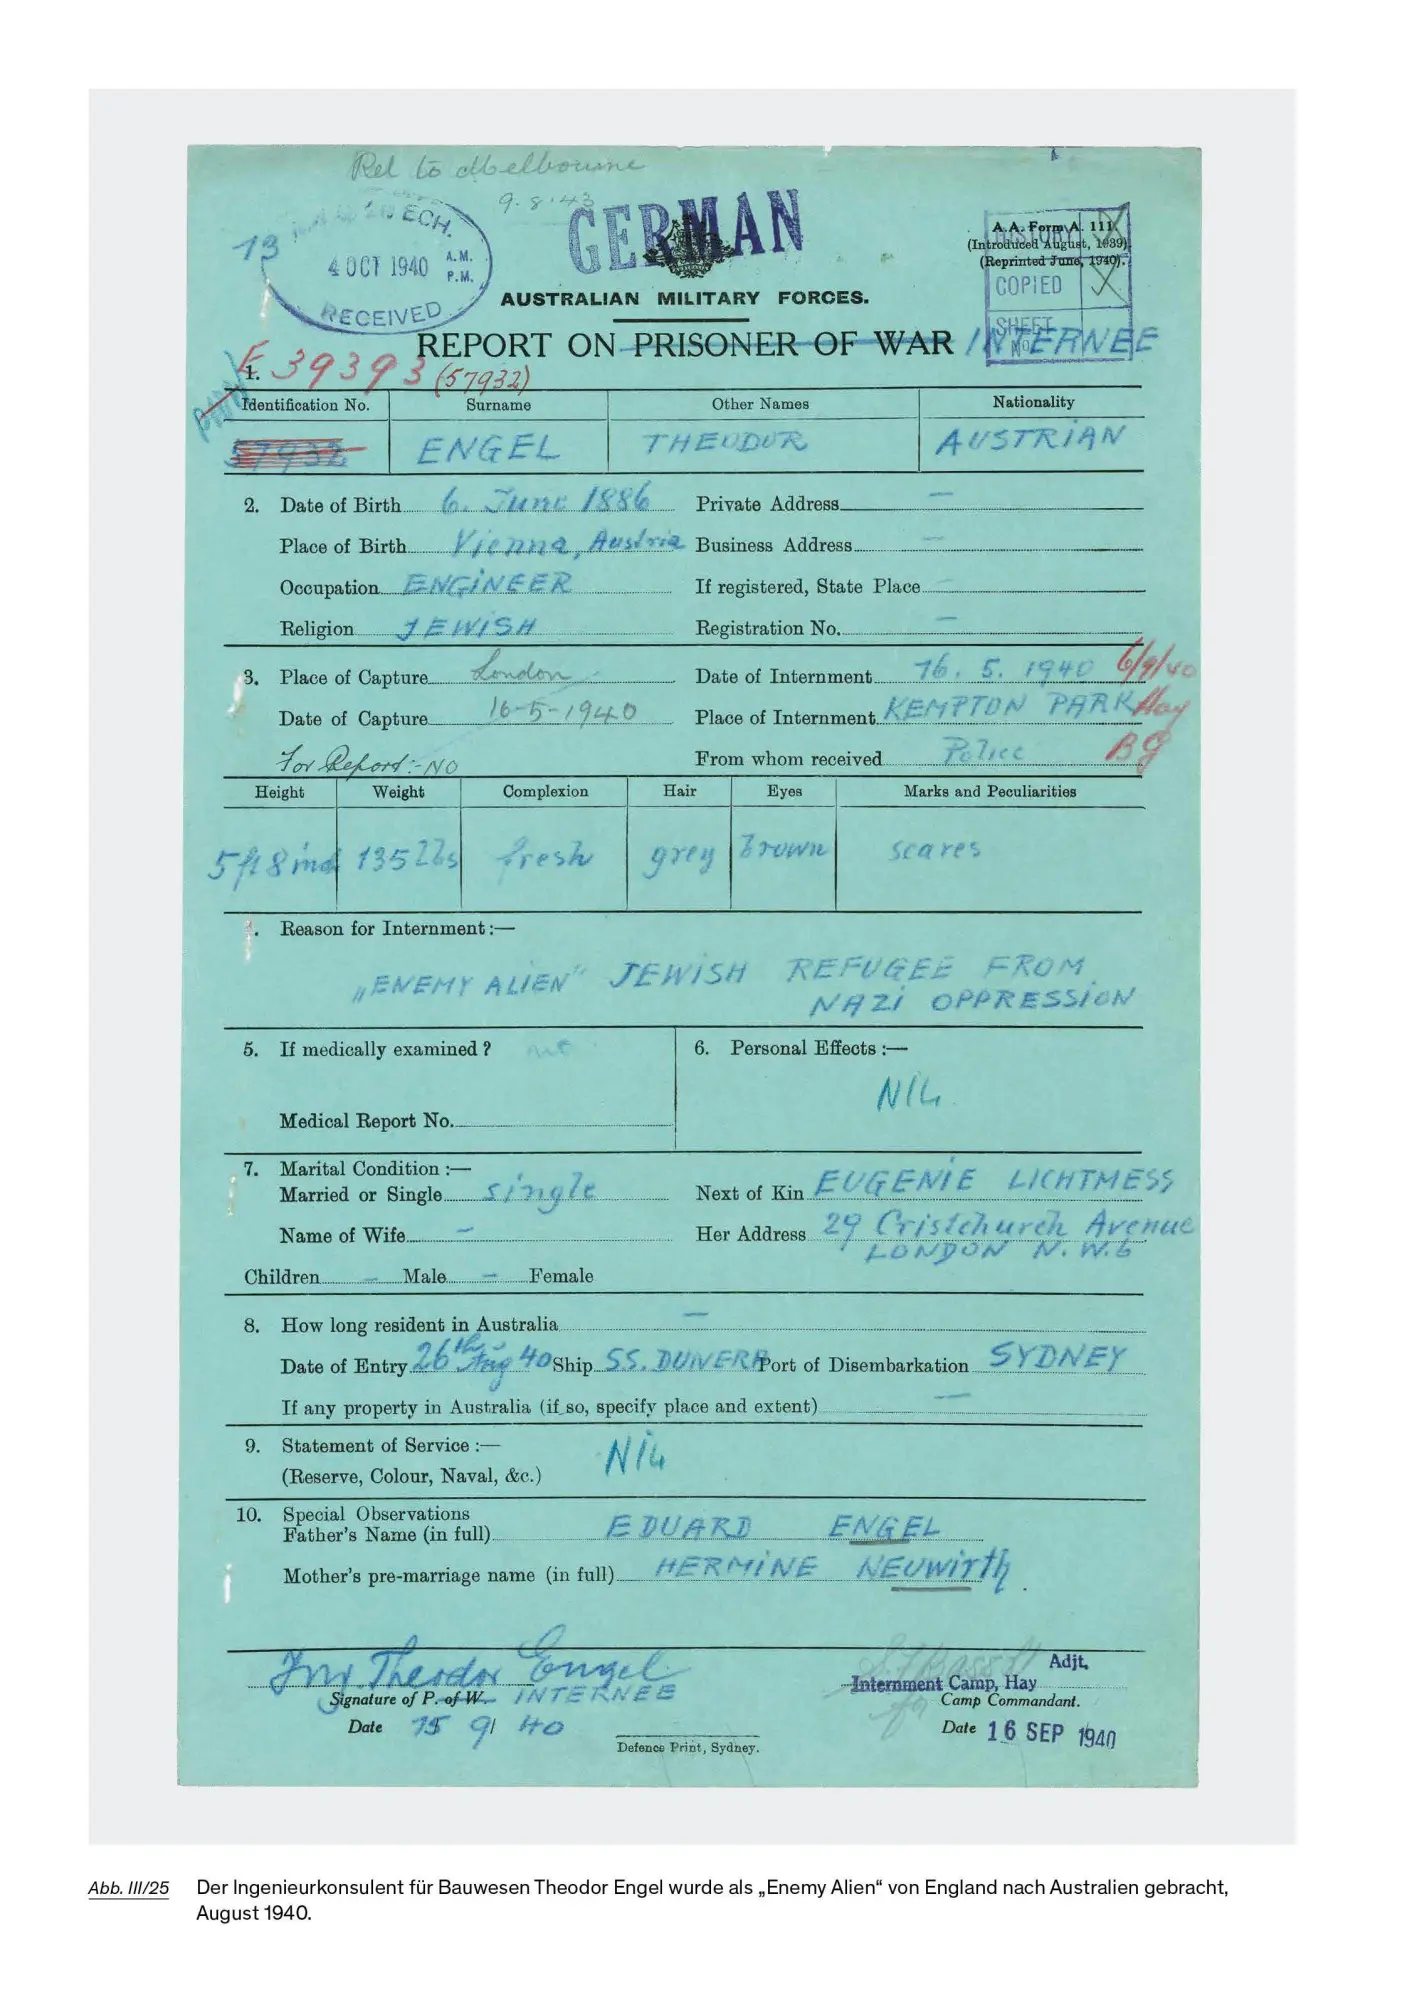 Rel to Melbourne
9.8.43
GERMAN
13
ECH.
4 OCT 1940 A.M. P.M.
RECEIVED
A.A. Form A. 111.
(Introduced August, 1939).
(Reprinted June, 1940).
HISTORY
COPIED
SHEET
No
AUSTRALIAN MILITARY FORCES.
REPORT ON PRISONER OF WAR INTERNEE
1. E 39393 (57932)
Identification No. Surname Other Names Nationality
57932 ENGEL THEODOR AUSTRIAN
2. Date of Birth 6. June 1886 Private Address —
Place of Birth Vienna, Austria Business Address —
Occupation ENGINEER If registered, State Place —
Religion JEWISH Registration No. —
3. Place of Capture London Date of Internment 16. 5. 1940 6/9/40
Date of Capture 16-5-1940 Place of Internment KEMPTON PARK Hay
For Report:- NO From whom received Police BG
Height Weight Complexion Hair Eyes Marks and Peculiarities
5 ft 8 inch 135 lbs fresh grey brown scares
. Reason for Internment :—
„ENEMY ALIEN" JEWISH REFUGEE FROM
NAZI OPPRESSION
5. If medically examined ? 6. Personal Effects :—
NIL
Medical Report No.
7. Marital Condition :—
Married or Single single Next of Kin EUGENIE LICHTMESS
Name of Wife — Her Address 29 Cristchurch Avenue
LONDON N.W.6
Children — Male — Female
8. How long resident in Australia —
Date of Entry 26th Aug 40 Ship SS. DUNERA Port of Disembarkation SYDNEY
If any property in Australia (if so, specify place and extent) —
9. Statement of Service :— NIL
(Reserve, Colour, Naval, &c.)
10. Special Observations
Father's Name (in full) EDUARD ENGEL
Mother's pre-marriage name (in full) HERMINE NEUWIRTH.
Ing. Theodor Engel Adjt.
Internment Camp, Hay
Signature of P. of W. INTERNEE for Camp Commandant.
Date 15 9/ 40 Date 16 SEP 1940
Defence Print, Sydney.
Abb. III/25 Der Ingenieurkonsulent für Bauwesen Theodor Engel wurde als „Enemy Alien“ von England nach Australien gebracht,
August 1940.